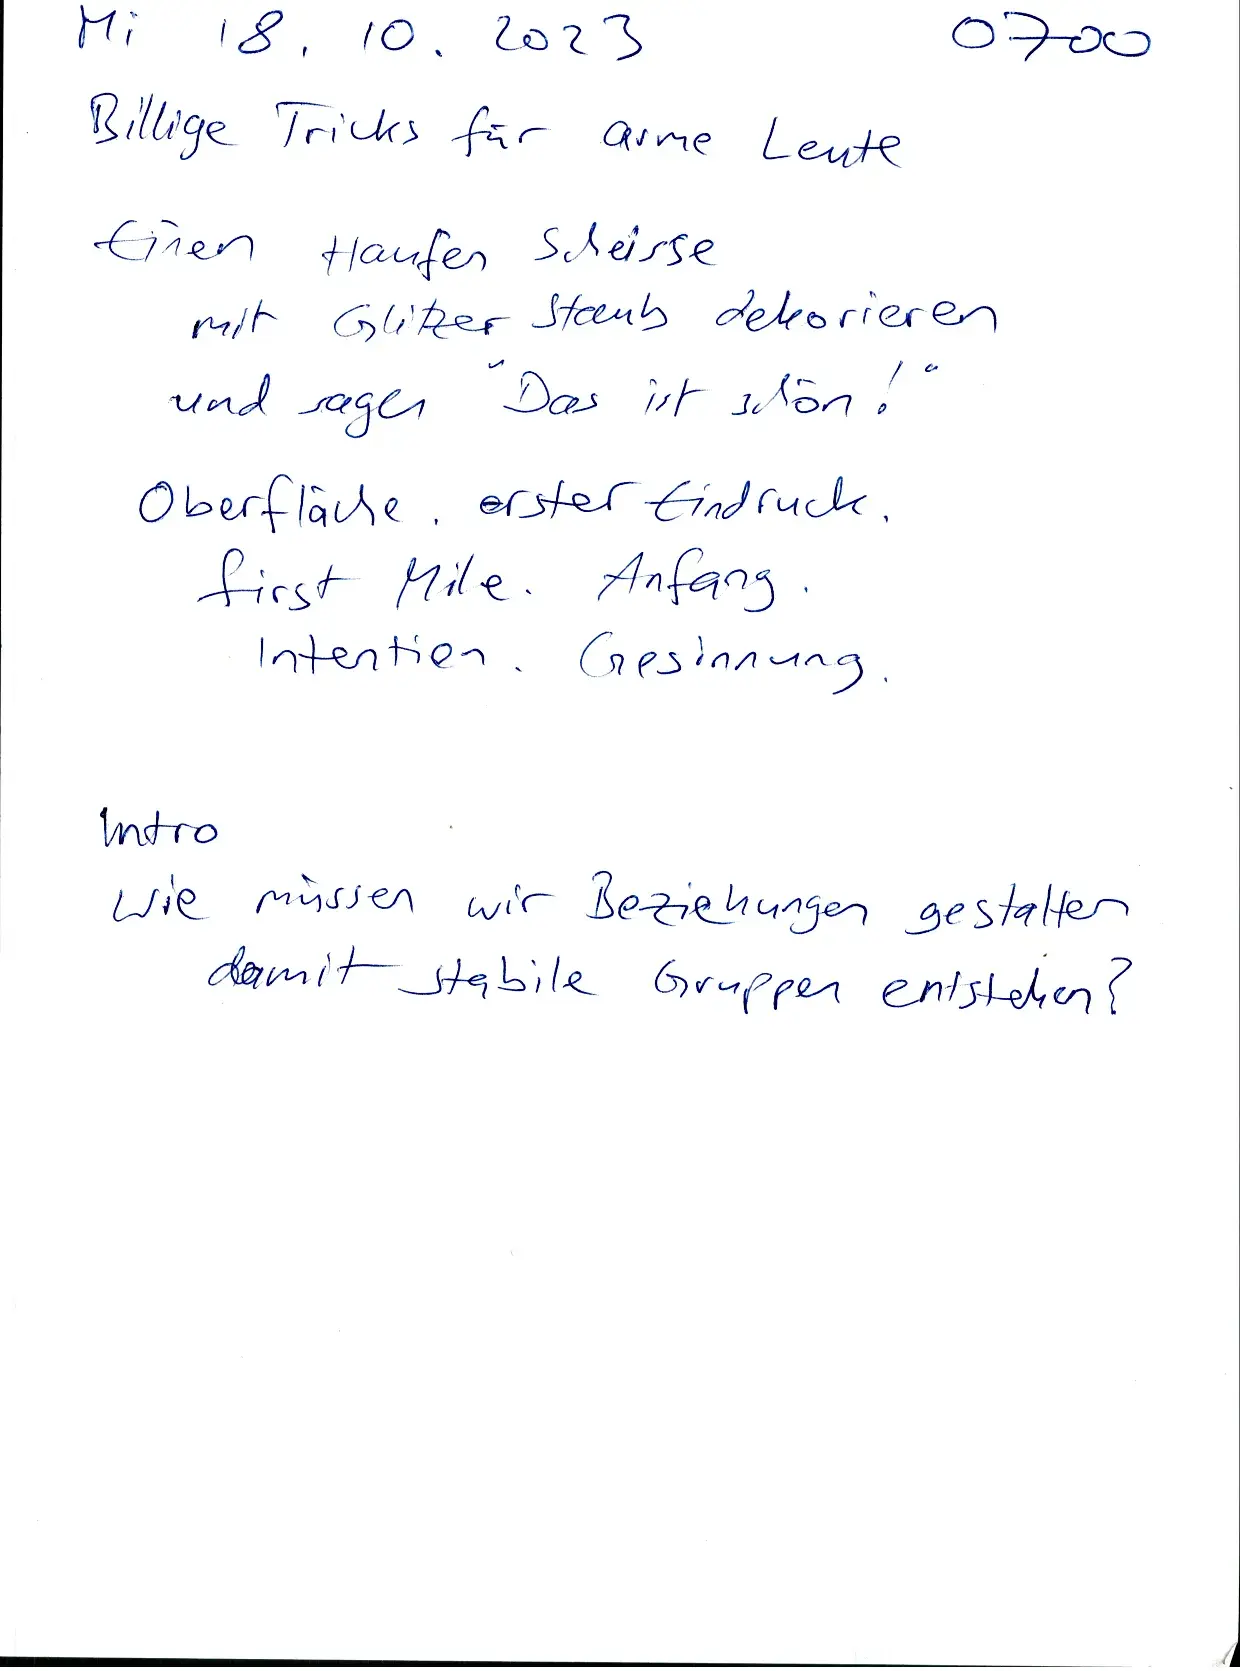 Mi 18. 10. 2023 0700
Billige Tricks für arme Leute
Einen Haufen Scheisse
mit Glitzer Staub dekorieren
und sagen "Das ist schön!"
Oberfläche. erster Eindruck.
first Mile. Anfang.
Intention. Gesinnung.
Intro
Wie müssen wir Beziehungen gestalten
damit stabile Gruppen entstehen?